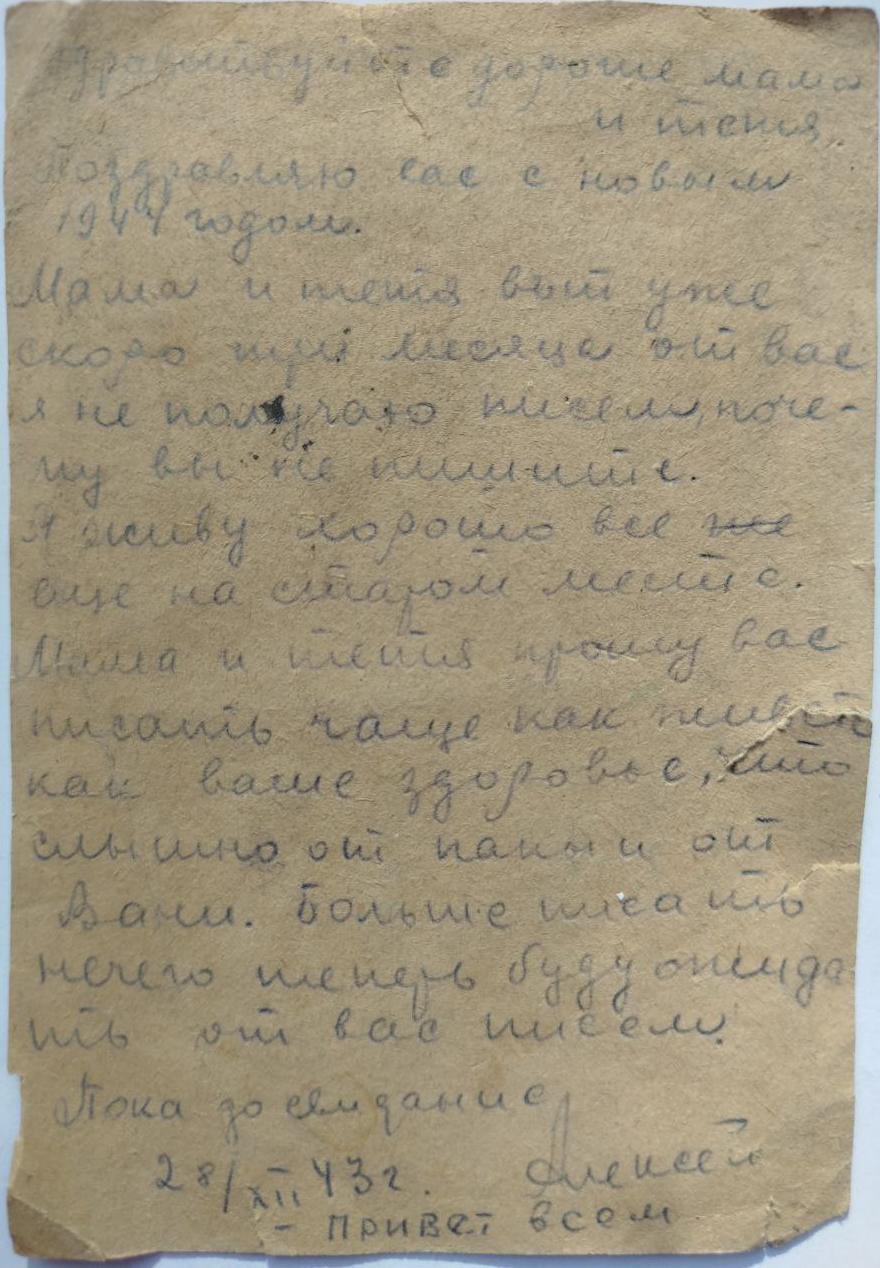 Здравствуйте дорогие мама
и тетя,
Поздравляю вас с новым
1944 годом.
Мама и тетя вот уже
скоро три месяца от вас
я не получаю писем, поче-
му вы не пишите.
Я живу хорошо все же
еще на старом месте.
Мама и тетя прошу вас
писать чаще как живете
как ваше здоровье, что
слышно от папы и от
Вани. Больше писать
нечего теперь буду ожида
ть от вас писем.
Пока до свидание
28/XII 43г. Алексей
- Привет всем